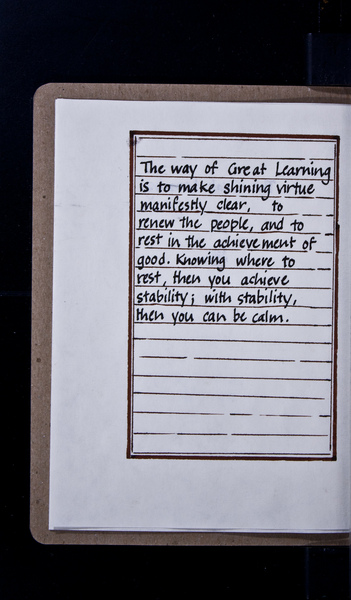 The way of Great Learning
is to make shining virtue
manifestly clear, to
renew the people, and to
rest in the achievement of
good. Knowing where to
rest, then you achieve
stability; with stability,
then you can be calm.